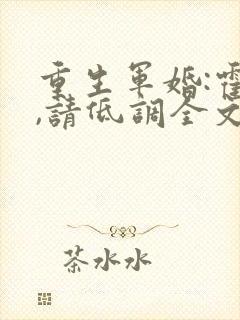 重生軍婚:霍
,請低調全文
茶水水